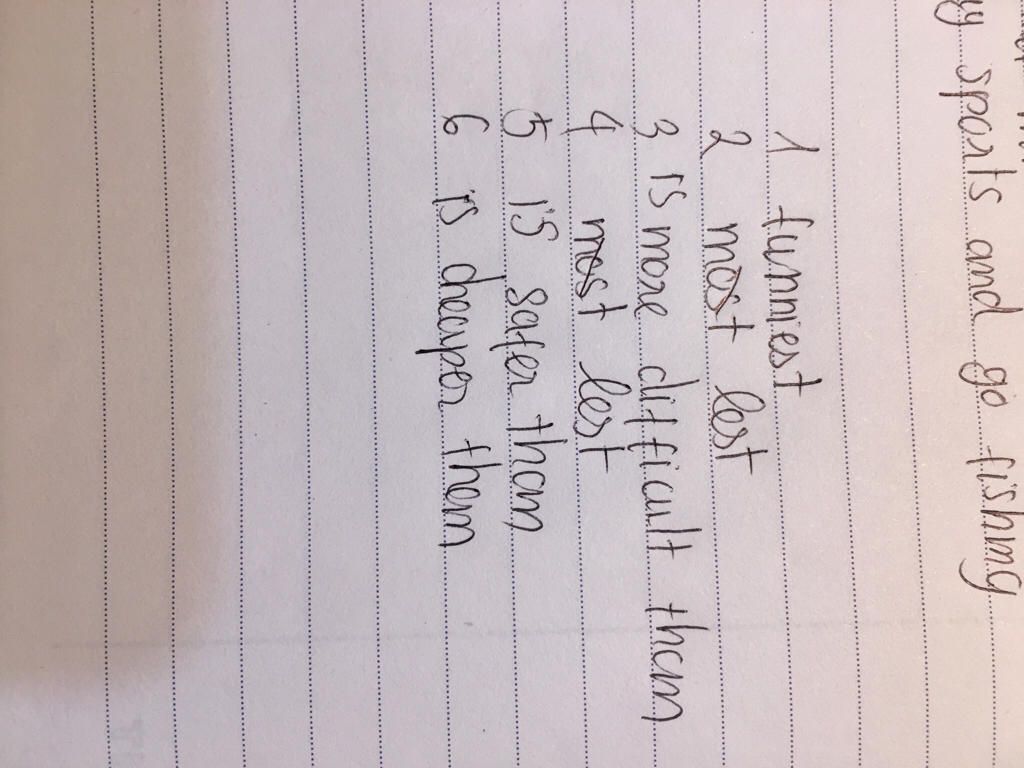 sports and go fishing
1 funniest
2 most lest
3 is more difficult than
4 most lest
5 is safer than
6 is cheaper them